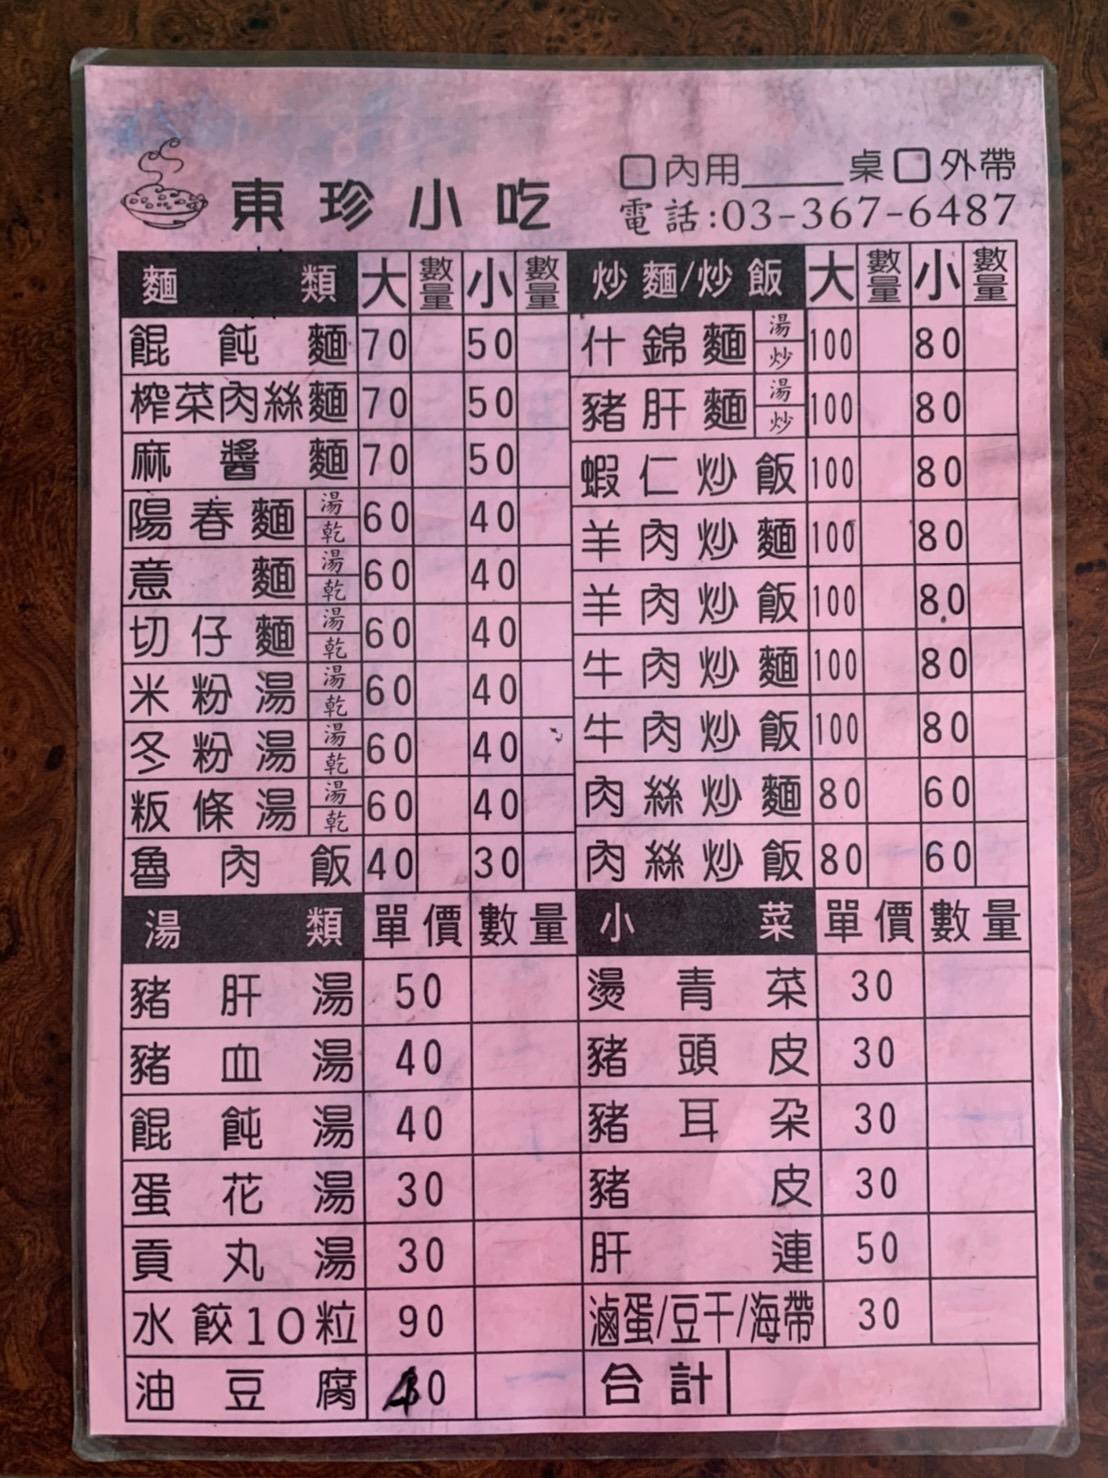 □內用_____桌□外帶
東珍小吃
電話:03-367-6487
麵類 大 數量 小 數量
餛飩麵 70 50
榨菜肉絲麵 70 50
麻醬麵 70 50
陽春麵 湯 乾 60 40
意麵 湯 乾 60 40
切仔麵 湯 乾 60 40
米粉湯 湯 乾 60 40
冬粉湯 湯 乾 60 40
粄條湯 湯 乾 60 40
魯肉飯 40 30
炒麵/炒飯 大 數量 小 數量
什錦麵 湯 炒 100 80
豬肝麵 湯 炒 100 80
蝦仁炒飯 100 80
羊肉炒麵 100 80
羊肉炒飯 100 80
牛肉炒麵 100 80
牛肉炒飯 100 80
肉絲炒麵 80 60
肉絲炒飯 80 60
湯類 單價 數量
豬肝湯 50
豬血湯 40
餛飩湯 40
蛋花湯 30
貢丸湯 30
水餃10粒 90
油豆腐 40
小菜 單價 數量
燙青菜 30
豬頭皮 30
豬耳朶 30
豬皮 30
肝連 50
滷蛋/豆干/海帶 30
合計